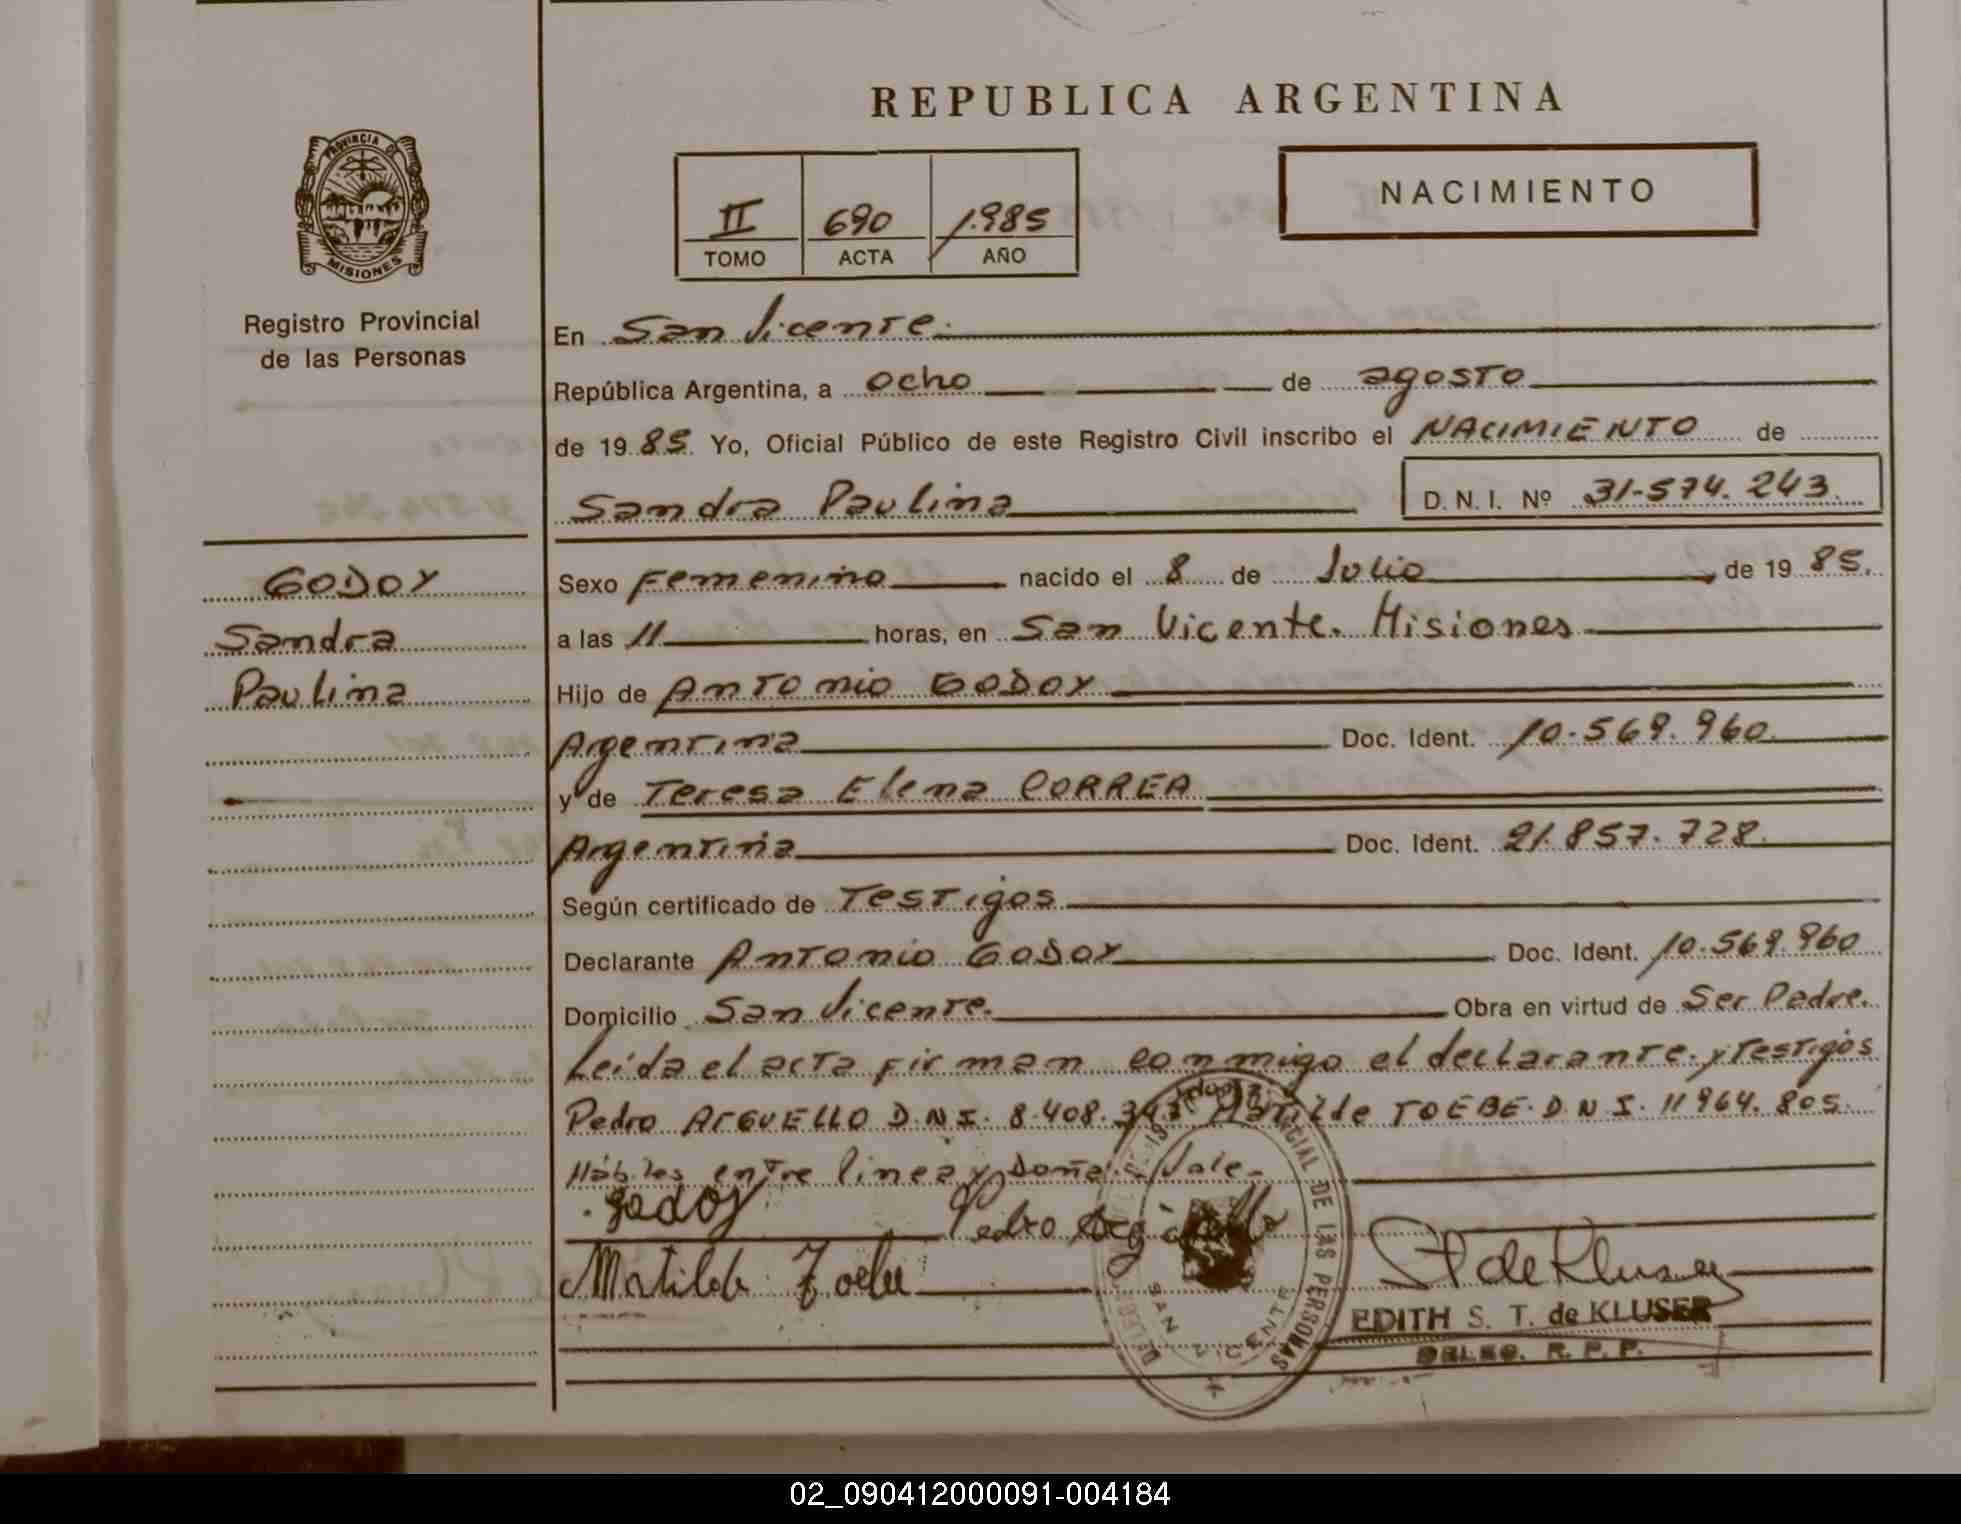 REPUBLICA ARGENTINA
PROVINCIA DE
MISIONES
Registro Provincial
de las Personas
NACIMIENTO
II 690 1.985
TOMO ACTA AÑO
En San Vicente.
República Argentina, a ocho de agosto
de 1985. Yo, Oficial Público de este Registro Civil inscribo el NACIMIENTO de
Sandra Paulina D. N. I. Nº 31-574.243.
GODOY
Sandra
Paulina
Sexo Femenino nacido el 8 de Julio de 1985.
a las 11 horas, en San Vicente. Misiones
Hijo de Antonio GODOY
Argentina Doc. Ident. 10.569.960.
y de Teresa Elena CORREA
Argentina Doc. Ident. 21.857.728.
Según certificado de Testigos
Declarante Antonio GODOY Doc. Ident. 10.569.960
Domicilio San Vicente. Obra en virtud de Ser Padre.
Leída el acta firman conmigo el declarante. y testigos
Pedro ArGUELLO D.N.I. 8.408. Matilde TOEBE. D.N.I. 11964.805.
Hábiles entre linea y Doña. Vale.
Godoy Pedro Argüello
Matilde Toebe
DE LAS PERSONAS
SAN VICENTE
EDITH S. T. de KLUSER
DELEG. R. P. P.
02_090412000091-004184